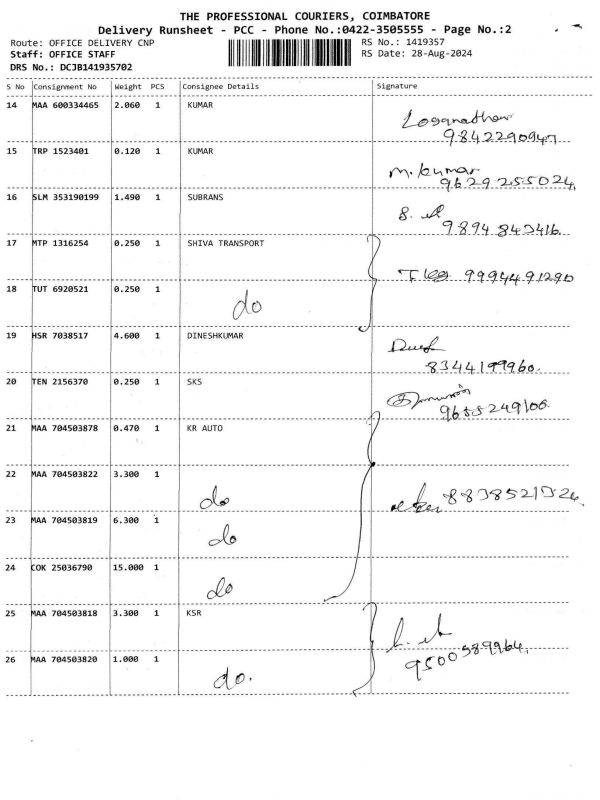 THE PROFESSIONAL COURIERS, COIMBATORE
Delivery Runsheet - PCC - Phone No.:0422-3505555 - Page No.:2
Route: OFFICE DELIVERY CNP
RS No.: 1419357
Staff: OFFICE STAFF
RS Date: 28-Aug-2024
DRS No.: DCJB141935702
S No Consignment No Weight PCS Consignee Details Signature
14 MAA 600334465 2.060 1 KUMAR
Loganathan
9842290947
15 TRP 1523401 0.120 1 KUMAR
M. Kumar
9629255024
16 SLM 353190199 1.490 1 SUBRANS
9894 843416
17 MTP 1316254 0.250 1 SHIVA TRANSPORT
9994491290
18 TUT 6920521 0.250 1
do
19 HSR 7038517 4.600 1 DINESHKUMAR
8344199960.
20 TEN 2156370 0.250 1 SKS
9655249106.
21 MAA 704503878 0.470 1 KR AUTO
22 MAA 704503822 3.300 1
do
8838521324
23 MAA 704503819 6.300 1
do
24 COK 25036790 15.000 1
do
25 MAA 704503818 3.300 1 KSR
9500589964.
26 MAA 704503820 1.000 1
do.